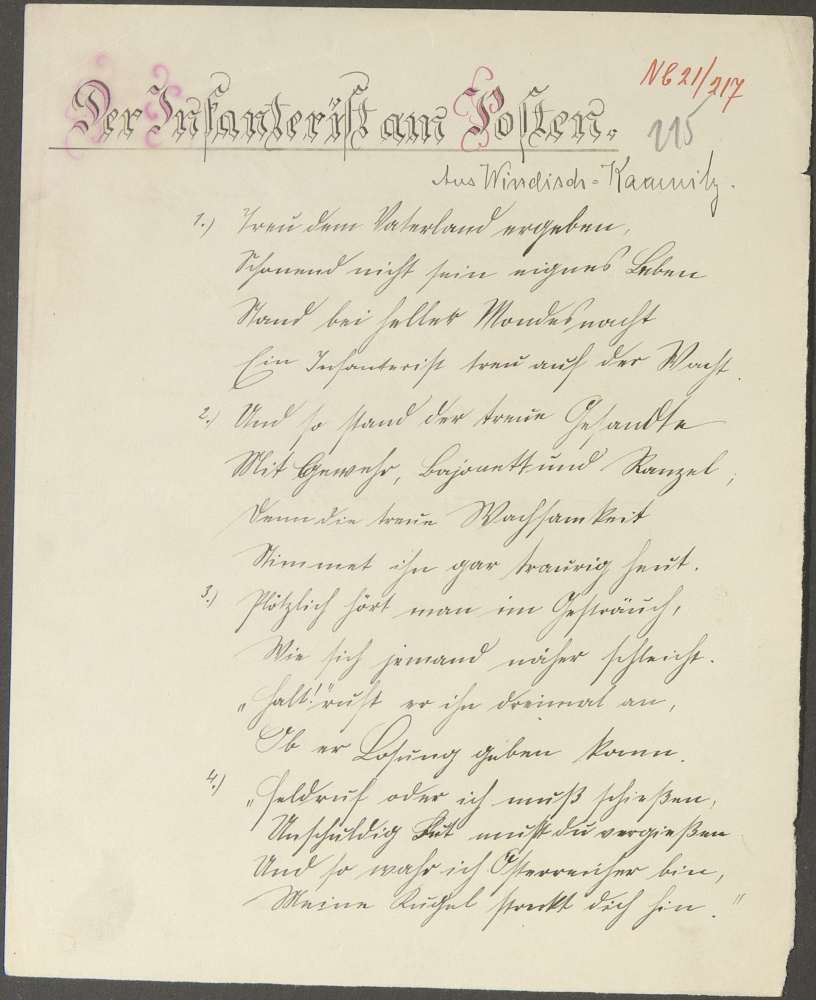 NB 21/217
Der Infanterist am Posten.
215
Aus Windisch-Kamnitz.
1.) Treu dem Vaterland ergeben,
Schonend nicht sein eignes Leben
Stand bei heller Mondesnacht
Ein Infanterist treu auf der Wacht.
2.) Und so stand der treue Gesandte
Mit Gewehr, Bajonett und Ranzel,
Denn die treue Wachsamkeit
Stimmet ihn gar traurig heut.
3.) Plötzlich hört man im Gesträuch,
Wie sich jemand näher schleicht.
"Halt!" ruft er ihn dreimal an,
Ob er Losung geben kann.
4.) "Feldruf oder ich muß schießen,
Unschuldig Blut mußt du vergießen
Und so wahr ich Österreicher bin,
Meine Kugel streckt dich hin."